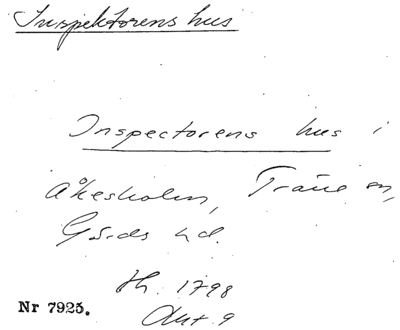 Inspektorens hus
Inspectorens hus i
Åkesholm, Träne sn,
Gärds hd.
th. 1798
Akt 9
Nr 7925.